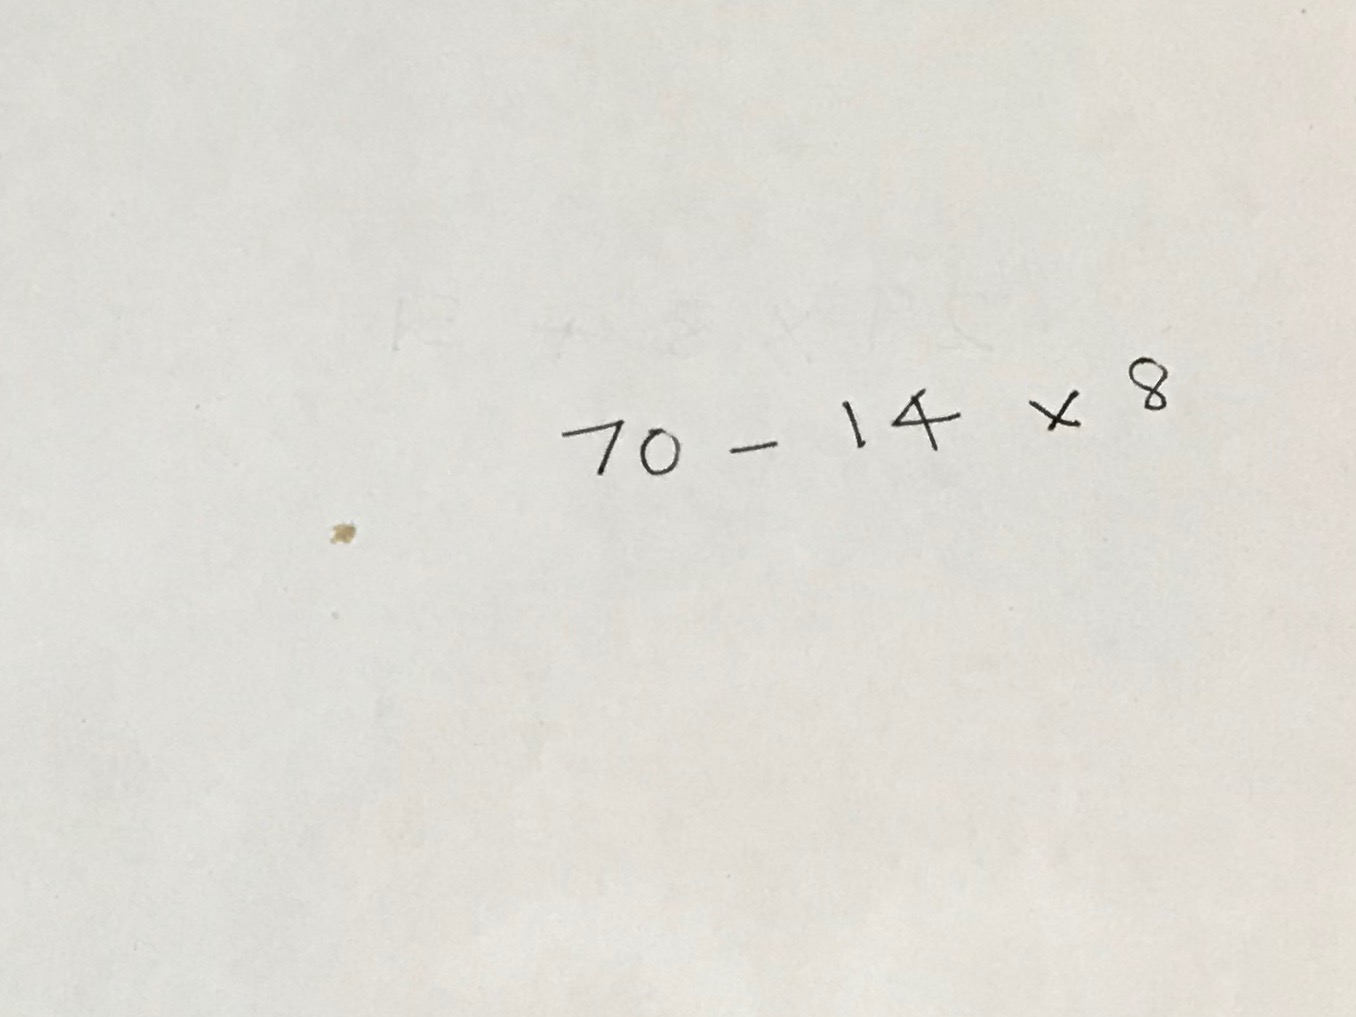 70 - 14 x 8